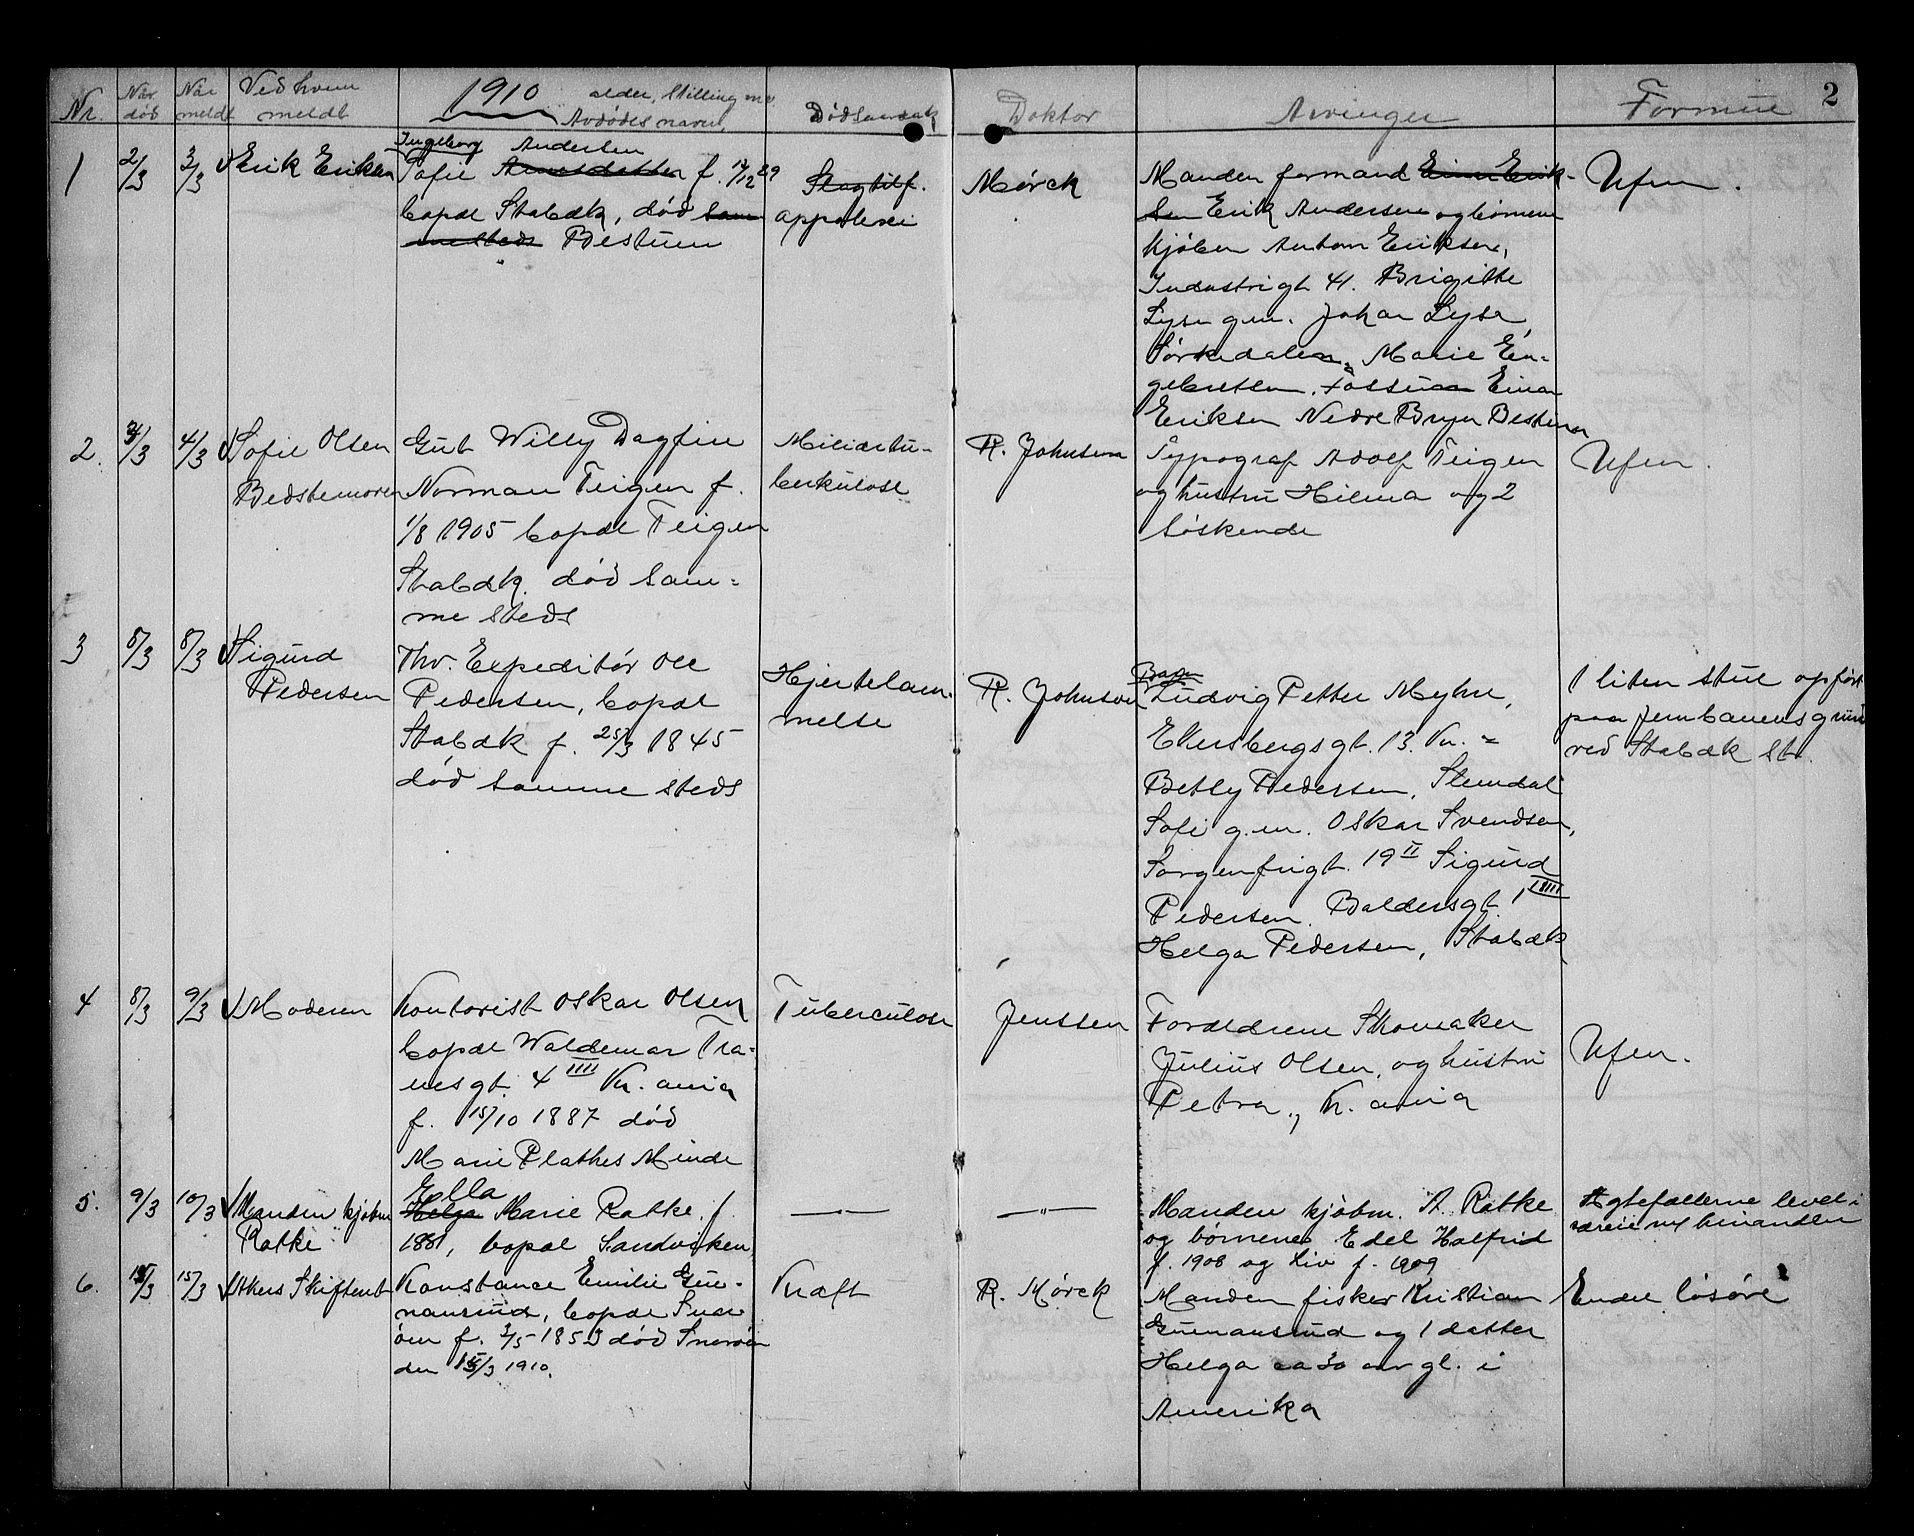 2
Nr. Når død Når meldt Ved hvem meldt 1910 Avdødes navn, alder, Stilling mv. Dødsaarsak Doktor Arvinger Formue
1 2/3 3/3 Erik Eriksen
Ingeborg Andersen
Sofie f. 12/12 29
bopæl Stabæk, død Sam-
mesteds Bestuen
Slagtilf.
appoplexi
Mørck
Manden formand Einar Erik-
sen Erik Andersen og børnene
kjøbm Anton Eriksen,
Industrigt 41. Brigitte
Lysa g.m. Johan Lysa,
Sørkedalen, Marie En-
gebretsen, Fossum Einar
Eriksen Nedre Bryn Bestuen
Ufor.
2. 3/3 4/3 Sofie Olsen
Bedstemoren
Gut Willy Dagfin
Norman Teigen f.
1/8 1905 bopæl Teigen
Stabæk død sam-
me steds
Miliærtu-
berkulose
R. Johnsen
Typograf Adolf Teigen
og hustru Hilma og 2
søskende
Ufor.
3 8/3 8/3 Sigurd
Pedersen
Fhv. Expeditør Ole
Pedersen, bopæl
Stabæk f. 25/3 1845
død samme steds
Hjertelam-
melse
R. Johnsen
Barn
Ludvig Petter Myhre,
Ekersbergsgt. 13. Kr. -
Betsy Pedersen, Slemdal
Sofi g.m. Oskar Svendsen,
Sorgenfrigt. 19 II Sigurd
Pedersen Baldersgt. 1 IIII
Helga Pedersen, Stabæk
1 liten stue opført
paa jernbanens grund
ved Stabæk St.
4 8/3 9/3 Moderen
Kontorist Oskar Olsen
bopæl Waldemar Tra-
nesgt. 4 IIII Kr. ania
f. 15/10 1887 død
Marie Plathes Minde
Tuberculose
Jenssen
Forældrene Skomaker
Julius Olsen, og hustru
Petra, Kr. ania
Ufor.
5. 9/3 10/3 Manden kjøbm
Ratke
Ella
Helga Marie Ratke f.
1881, bopæl Sandviken
— " —
— " —
Manden kjøbm. A. Ratke
og børnene Edel Halfrid
f. 1908 og Liv f. 1909
Ægtefællerne levet i
særeie mt hinanden
6. 15/3 15/3 Akers Skifteret
Konstance Emilie Gun-
nansrud, bopæl Snar
øen f. 3/5 1853 død Snarøen
den 15/3 1910.
Kræft
R. Mørck
Manden fisker Kristian
Gunnansrud og 1 datter
Helga ca 30 aar gl. i
Amerika
Endel løsøre